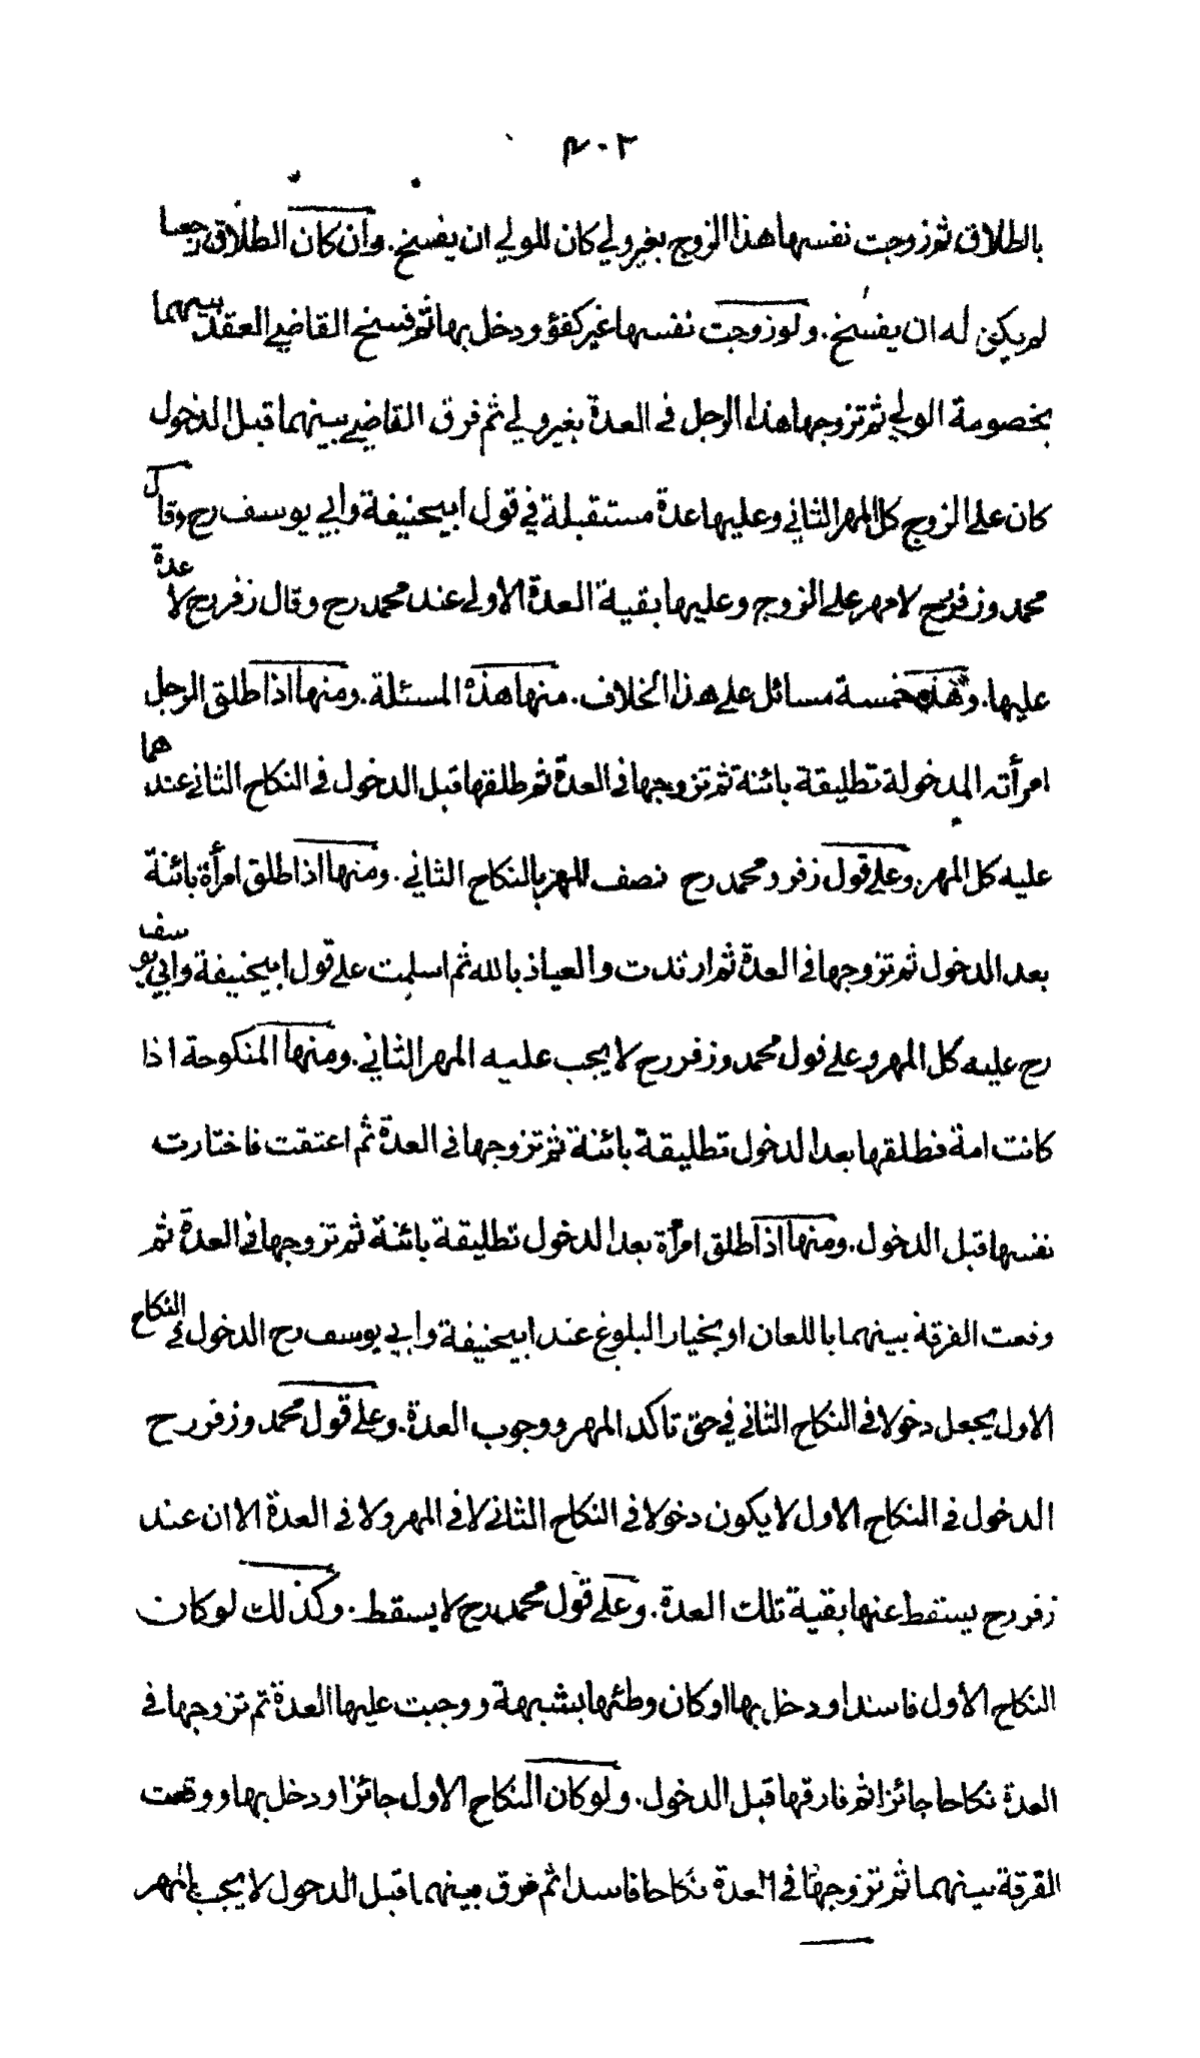 ٤٠٢
بالطلاق ثم زوجت نفسها هذا الزوج بغير ولي كان للمولي ان يفسخ. وان كان الطلاق رجعيا
لم يكن له ان يفسخ. ولو زوجت نفسها غير كفؤ ودخل بها ثم فسخ القاضي العقد بينهما
بخصومة الولي ثم تزوجها هذا الرجل في العدة بغير ولي ثم فرق القاضي بينهما قبل الدخول
كان على الزوج كل المهر الثاني وعليها عدة مستقبلة في قول ابيحنيفة وابي يوسف رح وقال
محمد وزفر رح لا مهر على الزوج وعليها بقية العدة الاولى عند محمد رح وقال زفر رح لا عدة
عليها. وهذه خمسة مسائل على هذا الخلاف. منها هذه المسئلة. ومنها اذا طلق الرجل
امرأته المدخولة تطليقة بائنة ثم تزوجها في العدة ثم طلقها قبل الدخول في النكاح الثاني عندهما
عليه كل المهر. وعلى قول زفر ومحمد رح نصف المهر بالنكاح الثاني. ومنها اذا طلق امرأة بائنة
بعد الدخول ثم تزوجها في العدة ثم ارتدت والعياذ بالله ثم اسلمت على قول ابيحنيفة وابي يوسف
رح عليه كل المهر وعلى قول محمد وزفر رح لا يجب عليه المهر الثاني. ومنها المنكوحة اذا
كانت امة فطلقها بعد الدخول تطليقة بائنة ثم تزوجها في العدة ثم اعتقت فاختارت
نفسها قبل الدخول. ومنها اذا طلق امرأة بعد الدخول تطليقة بائنة ثم تزوجها في العدة ثم
وقعت الفرقة بينهما باللعان او بخيار البلوغ عند ابيحنيفة وابي يوسف رح الدخول في النكاح
الاول يجعل دخولا في النكاح الثاني في حق تاكد المهر ووجوب العدة. وعلى قول محمد وزفر رح
الدخول في النكاح الاول لا يكون دخولا في النكاح الثاني لا في المهر ولا في العدة الا ان عند
زفر رح يسقط عنها بقية تلك العدة. وعلى قول محمد رح لا يسقط. وكذلك لو كان
النكاح الاول فاسدا ودخل بها او كان وطئها بشبهة ووجبت عليها العدة ثم تزوجها في
العدة نكاحا جائزا ثم فارقها قبل الدخول. ولو كان النكاح الاول جائزا ودخل بها ووقعت
الفرقة بينهما ثم تزوجها في العدة نكاحا فاسدا ثم فرق بينهما قبل الدخول لا يجب المهر